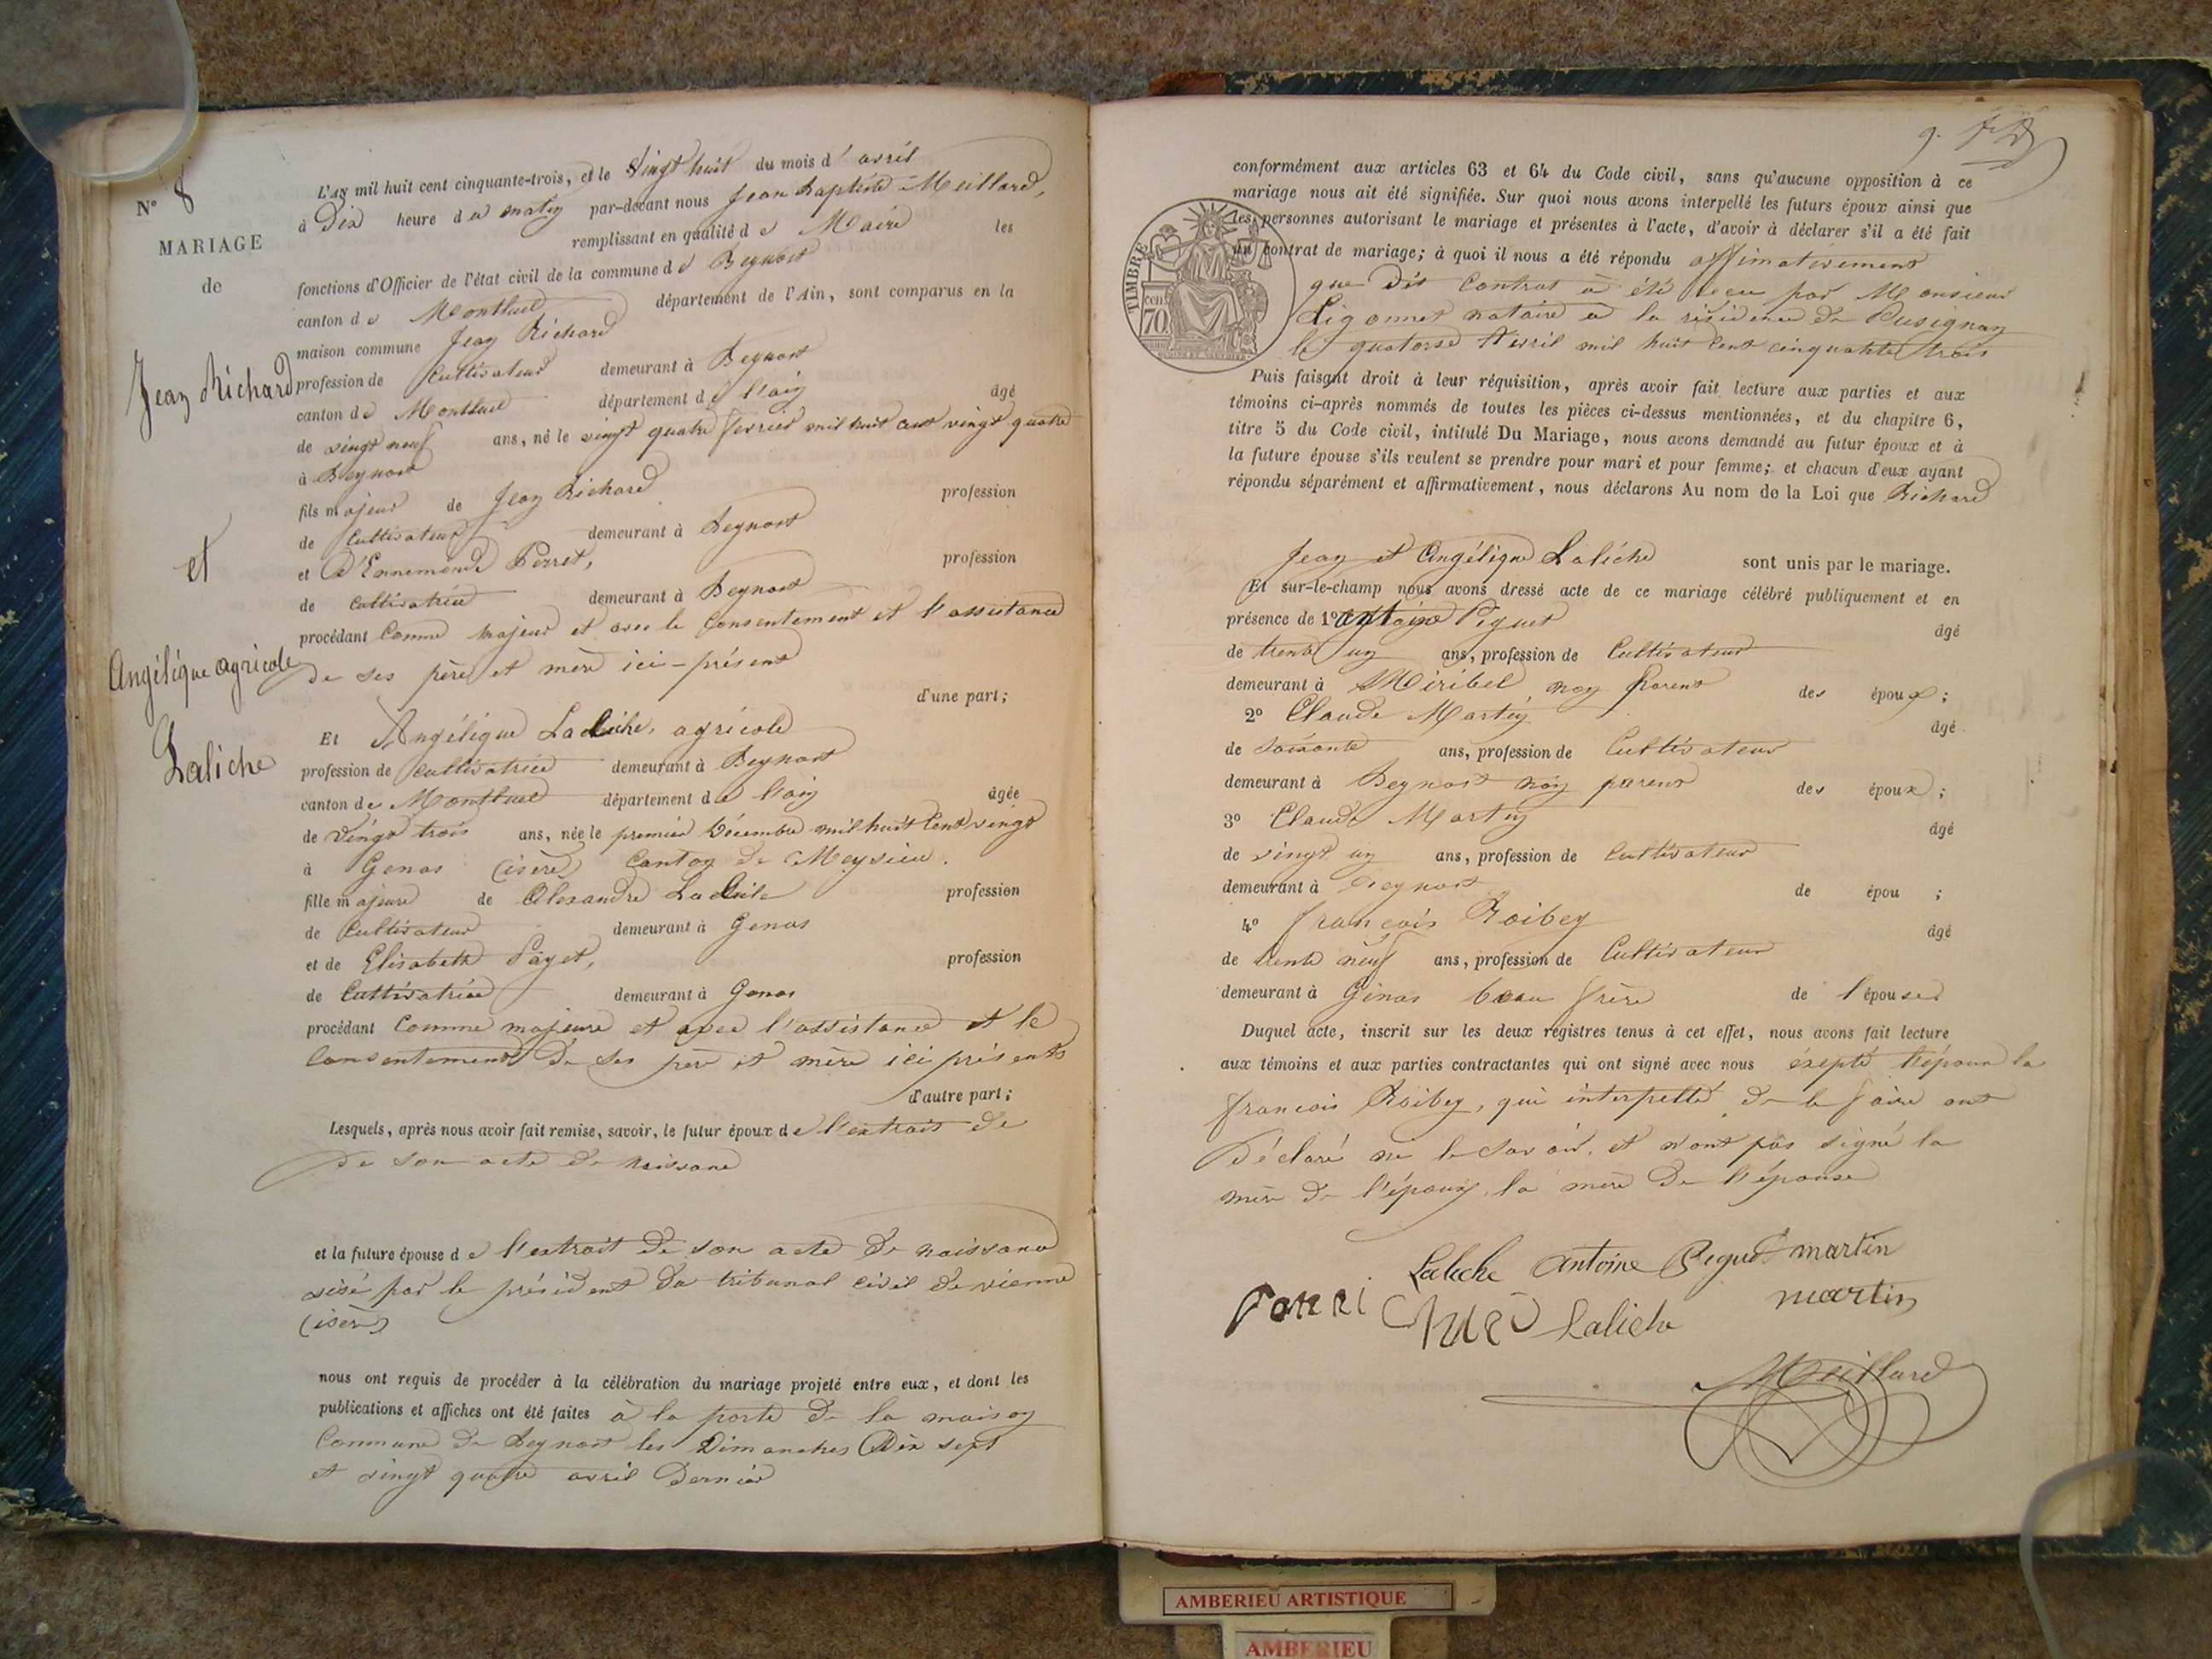 N° 8
MARIAGE
de
Jean Richard
et
Angélique agricole
Laliche
L'AN mil huit cent cinquante-trois, et le vingt huit du mois d' avril
à Dix heure du matin par-devant nous Jean Baptiste Meillard,
remplissant en qualité de Maire les
fonctions d'Officier de l'état civil de la commune de Beynost
canton de Montluel département de l'Ain, sont comparus en la
maison commune Jean Richard
profession de Cultivateur demeurant à Beynost
canton de Montluel département de l'ain âgé
de vingt neuf ans, né le vingt quatre fevrier mil huit cent vingt quatre
à Beynost
fils majeur de Jean Richard profession
de Cultivateur demeurant à Beynost
et d'Ennemonde Perret, profession
de cultivatrice demeurant à Beynost
procédant Comme majeur et avec le Consentement et l'assistance
de ses père et mère ici-présent
d'une part;
Et Angélique Laliche, agricole
profession de Cultivatrice demeurant à Beynost
canton de Montluel département de l'ain âgée
de vingt trois ans, née le premier Décembre mil huit Cent vingt
à Genas (isère) Canton de Meysieu.
fille majeure de Alexandre Laliche profession
de Cultivateur demeurant à Genas
et de Elisabeth Payet, profession
de Cultivatrice demeurant à Genas
procédant Comme majeure et avec l'assistance et le
Consentement de ses père et mère ici présents
d'autre part;
Lesquels, après nous avoir fait remise, savoir, le futur époux de l'extrait de
de son acte de naissance
et la future épouse de l'extrait de son acte de naissance
visé par le président du tribunal civil de vienne
(isère)
nous ont requis de procéder à la célébration du mariage projeté entre eux, et dont les
publications et affiches ont été faites à la porte de la maison
Commune de Beynost les Dimanches Dix sept
et vingt quatre avril Dernier
9.
conformément aux articles 63 et 64 du Code civil, sans qu'aucune opposition à ce
mariage nous ait été signifiée. Sur quoi nous avons interpellé les futurs époux ainsi que
les personnes autorisant le mariage et présentes à l'acte, d'avoir à déclarer s'il a été fait
un contrat de mariage; à quoi il nous a été répondu affimativement
que Dit Contrat a été reçu par Monsieur
Ligonnet notaire a la résidence de Pusignan
le quatorse Avril mil huit Cent cinquante trois
TIMBRE
cen
70
Puis faisant droit à leur réquisition, après avoir fait lecture aux parties et aux
témoins ci-après nommés de toutes les pièces ci-dessus mentionnées, et du chapitre 6,
titre 5 du Code civil, intitulé Du Mariage, nous avons demandé au futur époux et à
la future épouse s'ils veulent se prendre pour mari et pour femme; et chacun d'eux ayant
répondu séparément et affirmativement, nous déclarons Au nom de la Loi que Richard
Jean et Angélique Laliche sont unis par le mariage.
Et sur-le-champ nous avons dressé acte de ce mariage célébré publiquement et en
présence de 1° antoine Piquet âgé
de trente un ans, profession de Cultivateur
demeurant à Miribel, non parent des époux;
2° Claude Martin âgé
de soixante ans, profession de Cultivateur
demeurant à Beynost non parent des époux;
3° Claude Martin âgé
de vingt un ans, profession de Cultivateur
demeurant à Beynost de épou ;
4° françois Roibey âgé
de trente neuf ans, profession de Cultivateur
demeurant à Ginas beau frère de l'épouse
Duquel acte, inscrit sur les deux registres tenus à cet effet, nous avons fait lecture
aux témoins et aux parties contractantes qui ont signé avec nous éxepté l'époux la
françois Roibey, qui interpellé de le faire ont
Déclaré ne le savoir. et n'ont pas signé la
mère de l'époux, la mère de l'épouse
Laliche antoine Piquet martin
martin
Laliche
Meillard
AMBERIEU ARTISTIQUE
AMBERIEU